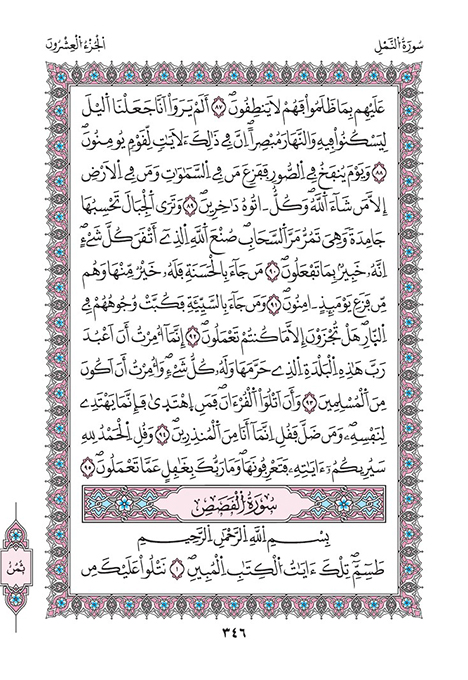 سُورَةُ النَّمْلِ
الْجُزْءُ الْعِشْرُونَ
عَلَيْهِم بِمَا ظَلَمُواْ فَهُمْ لَا يَنطِقُونَۖ ٨٧ أَلَمْ يَرَوَاْ اَنَّا جَعَلْنَا اَ۬ليْلَ
لِيَسْكُنُواْ فِيهِ وَالنَّهَارَ مُبْصِراًۖ اِنَّ فِے ذَٰلِكَ ءَلَايَٰتٖ لِّقَوْمٖ يُومِنُونَۖ
٨٨ وَيَوْمَ يُنفَخُ فِے اِ۬لصُّورِ فَفَزِعَ مَن فِے اِ۬لسَّمَٰوَٰتِ وَمَن فِے اِ۬لَارْضِ
إِلَّا مَن شَآءَ اَ۬للَّهُۖ وَكُلٌّ ـ اتُوهُ دَٰخِرِينَۖ ٨٩ وَتَرَي اَ۬لْجِبَالَ تَحْسِبُهَا
جَامِدَةٗ وَهِيَ تَمُرُّ مَرَّ اَ۬لسَّحَابِۖ صُنْعَ اَ۬للَّهِ اِ۬لذِےٓ أَتْقَنَ كُلَّ شَےْءٍۖ
اِنَّهُۥ خَبِيرُۢ بِمَا تَفْعَلُونَۖ ٩٠ مَن جَآءَ بِالْحَسَنَةِ فَلَهُۥ خَيْرٞ مِّنْهَا وَهُم
مِّن فَزَعِ يَوْمَئِذٍ ـ امِنُونَۖ ٩١ وَمَن جَآءَ بِالسَّيِّئَةِ فَكُبَّتْ وُجُوهُهُمْ فِے
اِ۬لنّ۪ارِۖ هَلْ تُجْزَوْنَ إِلَّا مَا كُنتُمْ تَعْمَلُونَۖ ٩٢ إِنَّمَآ أُمِرْتُ أَنَ اَعْبُدَ
رَبَّ هَٰذِهِ اِ۬لْبَلْدَةِ اِ۬لذِے حَرَّمَهَا وَلَهُۥ كُلُّ شَےْءٖۖ وَأُمِرْتُ أَنَ اَكُونَ
مِنَ اَ۬لْمُسْلِمِينَ ٩٣ وَأَنَ اَتْلُوَاْ اَ۬لْقُرْءَانَۖ فَمَنِ اِ۪هْتَد۪يٰ فَإِنَّمَا يَهْتَدِے
لِنَفْسِهِۦۖ وَمَن ضَلَّ فَقُلِ اِنَّمَآ أَنَا مِنَ اَ۬لْمُنذِرِينَۖ ٩٤ وَقُلِ اِ۬لْحَمْدُ لِلهِ
سَيُرِيكُمُۥٓ ءَايَٰتِهِۦ فَتَعْرِفُونَهَاۖ وَمَا رَبُّكَ بِغَٰفِلٍ عَمَّا تَعْمَلُونَۖ ٩٥
سُورَةُ الْقَصَصِ
بِسْمِ اِ۬للَّهِ اِ۬لرَّحْمَٰنِ اِ۬لرَّحِيمِ
طَسِٓمِّٓۖ تِلْكَ ءَايَٰتُ اُ۬لْكِتَٰبِ اِ۬لْمُبِينِۖ ١ نَتْلُواْ عَلَيْكَ مِن
ثُمُنُ
٣٤٦